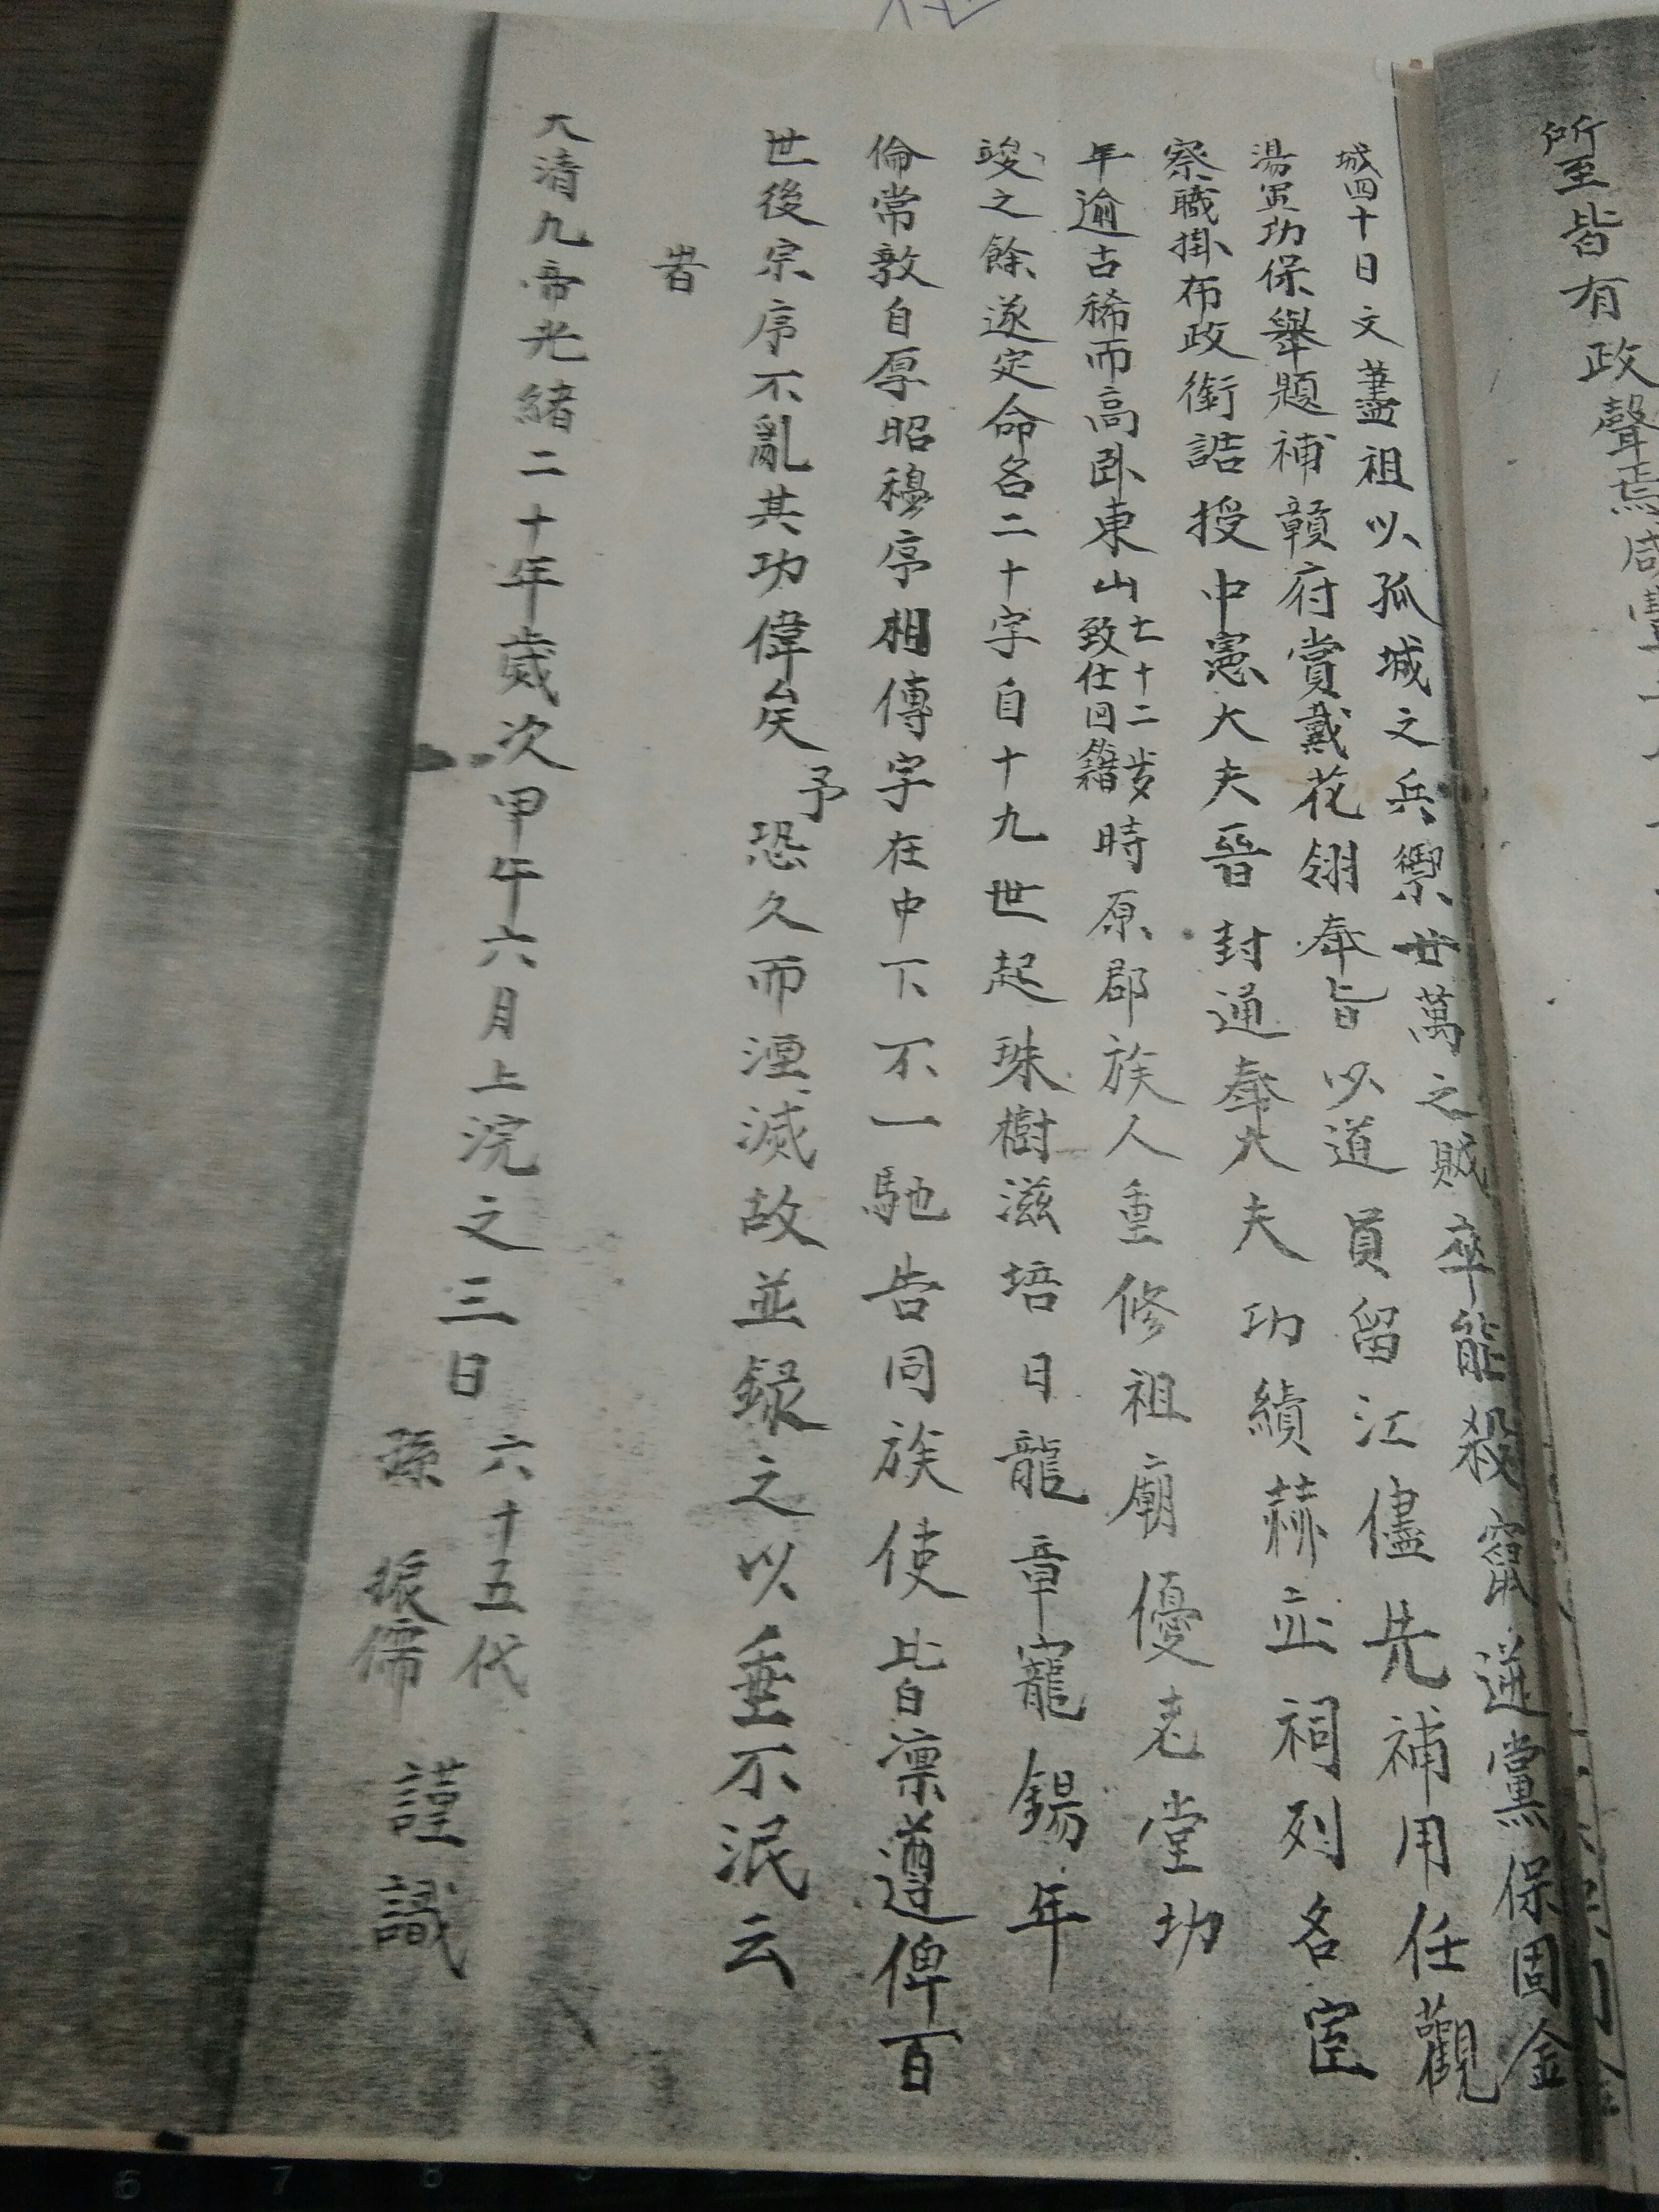 所至皆有政聲焉咸豐
城四十日文藎祖以孤城之兵禦廿萬之賊卒能殺竄逆黨保固金
湯軍功保舉題補贛府賞戴花翎奉旨以道員留江儘先補用任觀
察職掛布政銜誥授中憲大夫晉封通奉大夫功績赫並祠列名宦
年逾古稀而高卧東山七十二岁致仕回籍時原郡族人重修祖廟優老堂功
竣之餘遂定命名二十字自十九世起珠樹滋培日龍章寵錫年
倫常敦自厚昭穆序相傳字在中下不一馳告同族使皆凛遵俾百
世後宗序不亂其功偉矣予恐久而湮滅故並録之以垂不泯云
旹
大清九帝光緒二十年歲次甲午六月上浣之三日
六十五代
孫振儒謹識